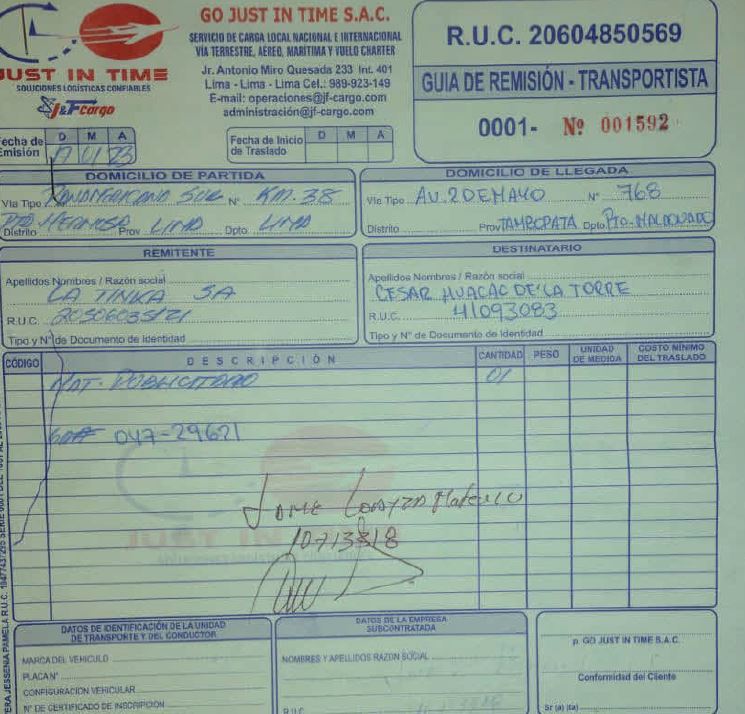 GO JUST IN TIME S.A.C.
SERVICIO DE CARGA LOCAL NACIONAL E INTERNACIONAL
VIA TERRESTRE, AEREO, MARITIMA Y VUELO CHARTER
Jr. Antonio Miro Quesada 233 Int. 401
Lima - Lima - Lima Cel.: 989-923-149
E-mail: operaciones@jf-cargo.com
administración@jf-cargo.com
JUST IN TIME
SOLUCIONES LOGÍSTICAS CONFIABLES
J&F cargo
R.U.C. 20604850569
GUIA DE REMISIÓN - TRANSPORTISTA
0001- Nº 001592
Fecha de Emisión D M A
Fecha de Inicio de Traslado D M A
DOMICILIO DE PARTIDA
Via Tipo PANAMERICANO SUR Nº KM. 38
Distrito PTO HERMOSA Prov LIMA Dpto LIMA
DOMICILIO DE LLEGADA
Vie Tipo AV. 2 DE MAYO Nº 768
Distrito Prov TAMBOPATA Dpto Pto. MALDONADO
REMITENTE
Apellidos Nombres / Razón social
LA TINKA SA
R.U.C. 20506035121
Tipo y Nº de Documento de Identidad
DESTINATARIO
Apellidos Nombres / Razón social
CESAR HUACAC DE LA TORRE
R.U.C. 41093083
Tipo y Nº de Documento de Identidad
CÓDIGO DESCRIPCIÓN CANTIDAD PESO UNIDAD DE MEDIDA COSTO MÍNIMO DEL TRASLADO
MAT. PUBLICITARIO 01
047-29621
JUST IN TIME
10713818
DATOS DE IDENTIFICACIÓN DE LA UNIDAD DE TRANSPORTE Y DEL CONDUCTOR
MARCA DEL VEHICULO
PLACA Nº
CONFIGURACIÓN VEHICULAR
Nº DE CERTIFICADO DE INSCRIPCIÓN
DATOS DE LA EMPRESA SUBCONTRATADA
NOMBRES Y APELLIDOS RAZON SOCIAL
R.U.C.
p. GO JUST IN TIME S.A.C.
Conformidad del Cliente
Sr (a) (ta)